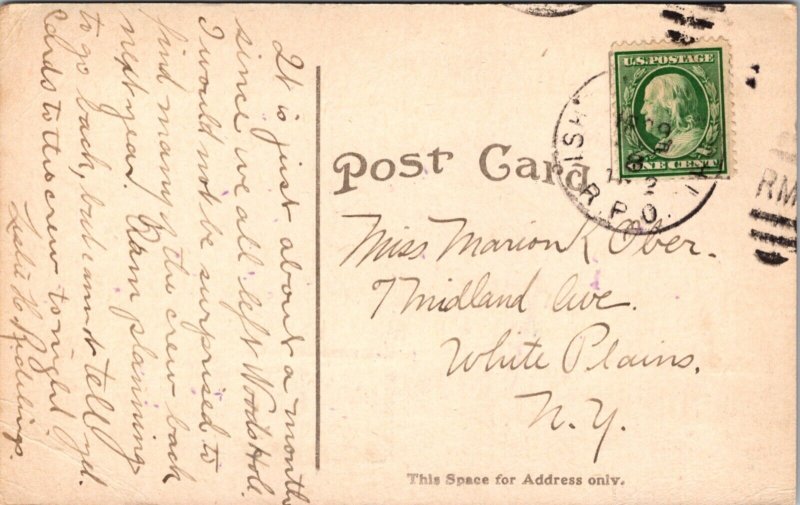 It is just about a month
since we all left Woods Hole.
I would not be surprised to
find many of the crew back
next year. I am planning
to go back, but cannot tell yet.
Cards to this crew tonight
Leslie H.
Post Card
U.S. POSTAGE
ONE CENT
R.P.O.
RM
Miss Marion K Ober.
7 Midland Ave.
White Plains,
N.Y.
This Space for Address only.